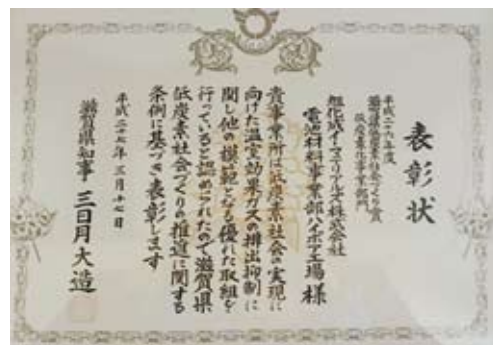 表彰状
平成二十六年度
滋賀県低炭素社会づくり賞
低炭素化事業部門
旭化成イーマテリアルズ株式会社
電池材料事業部ハイポア工場 様
貴事業所は低炭素社会の実現に
向けた温室効果ガスの排出抑制に
関し他の模範となる優れた取組を
行っていると認められたので滋賀県
低炭素社会づくりの推進に関する
条例に基づき表彰します
平成二十七年三月十七日
滋賀県知事 三日月大造